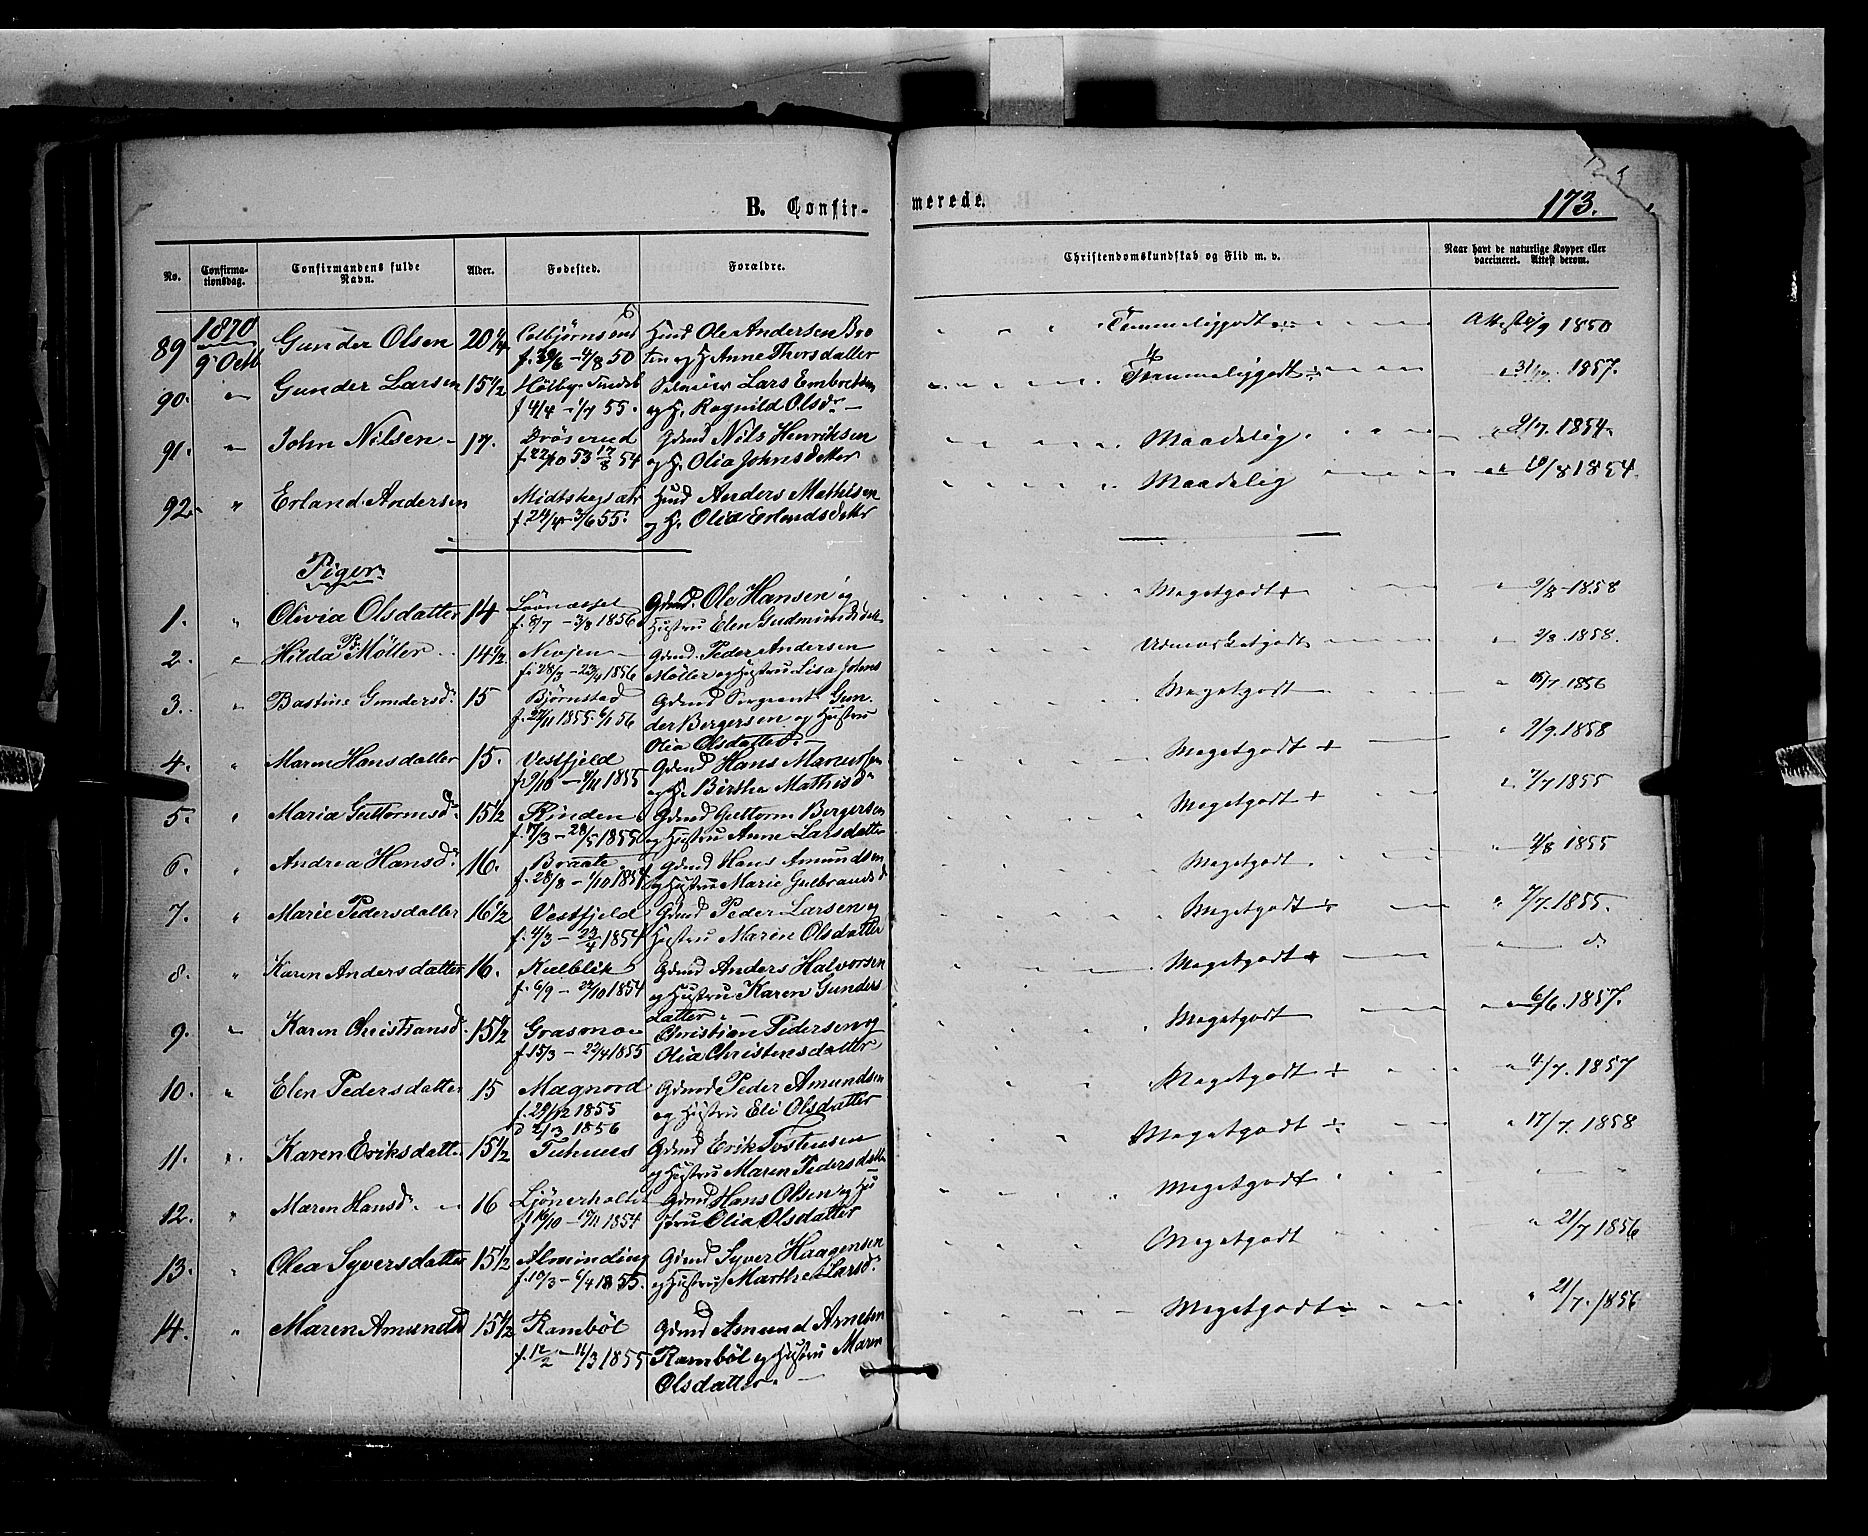 B. Confir-
merede.
173.
No.
Confirma-
tionsdag.
Confirmandens fulde
Navn.
Alder.
Fødested.
Forældre.
Christendomskundskab og Flid m. v.
Naar havt de naturlige Kopper eller
vaccineret. Attest derom.
1870
89 9 Octb Gunder Olsen 20 1/4
Husmd Ole Andersen Bra
ten og H Anne Thorsdatter
Temmeliggodt
1850
90. " Gunder Larsen 15 1/2
f 4/4 - 1/7 55.
Lars Embretsen
og H. Ragnild Olsdr
Temmeliggodt
1857.
91. " John Nilsen 17. Drøserud
f. 22/10 53 17/8 54
Gdmd Nils Henriksen
og H. Olia Johnsdatter
Maadelig.
1854
92. " Erland Andersen
f. 24/4 - 3/6 55.
Husmd Anders Mathisen
og H. Olia Erlandsdatter
Maadelig
/8 1854.
Piger
1. " Olivia Olsdatter 14
f. 8/7 - 3/8 1856
Gdmd. Ole Hansen og
Hustru Elen Gudmundsdat
Megetgodt +
9/8 1858
2. " Hilda Ps Møller 14 1/2
f. 28/3 - 23/4 1856
Gdmd. Peder Andersen
Møller og Hustru Lisa Johns
Udmærketgodt
2/8. 1858.
3. " Bastine Gundersdr 15 Bjørnstad
f. 27/11 1855. 6/1 56
Gdmd Sergeant Gun-
der Bergersen og Hustru
Olia Olsdatter.
Megetgodt
/7. 1856
4. " Maren Hansdatter 15. Vestfjeld
f. 9/10 - 4/11 1855
Gdmd Hans Marentsen
og H. Birthe Mathisdr
Megetgodt +
2/9. 1858
5. " Maria Guttormsdr 15 1/2 Rinden
f. 7/3 - 28/5 1855
Gdmd Guttorm Bergersen
og Hustru Anne Larsdatter
Megetgodt +
7/7 1855
6. " Andrea Hansdr 16. Braate
f. 28/8 - 1/10 1854
Gdmd Hans Amundsen
og Hustru Marie Gulbrandsd
Megetgodt
4/8 1855
7. " Marie Pedersdatter 16 1/2 Vestfjeld
f. 4/3 - 23/4 1854
Gdmd Peder Larsen og
Hustru Maren Olsdatter
Megetgodt
7/7. 1855.
8. " Karen Andersdatter 16. Kulblik
f. 6/9 - 22/10 1854
Gdmd Anders Halvorsen
og Hustru Karen Gunders
datter
Megetgodt +
d.
9. " Karen Christiansd. 15 1/2 Grasmo
f. 15/3 - 22/4 1855
Christian Pedersen og
Olia Christensdatter
Megetgodt
6/6. 1857.
10. " Elen Pedersdatter 15 Magnord
f. 29/12 1855
d 2/3 1856
Gdmd Peder Amundsen
og Hustru Eli Olsdatter
Megetgodt
4/7. 1857
11. " Karen Eriksdatter 15 1/2
Gdmd Erik Tostensen
og Hustru Maren Pedersdatter
Megetgodt
17/7. 1858
12. " Maren Hansdr 16
f. 16/10 - 19/11 1854
Gdmd Hans Olsen og Hu
stru Olia Olsdatter
Megetgodt
13. " Olea Syversdatter 15 1/2 Alminding
f. 10/3 - 6/4 1855.
Gdmd Syver Haagensen
og Hustru Marthe Larsd.
Megetgodt
21/7 1856
14. " Maren Amundsd 15 1/2 Rambøl
f. 12/2 - 11/3 1855
Gdmd Amund Arnesen
Rambøl og Hustru Maren
Olsdatter.
Megetgodt
21/7. 1856